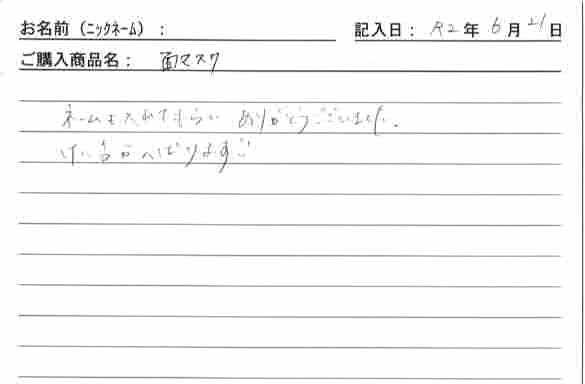 お名前（ニックネーム）：
記入日： R2年 6月 21日
ご購入商品名： 面マスク
ネームも入れてもらい ありがとうございました。